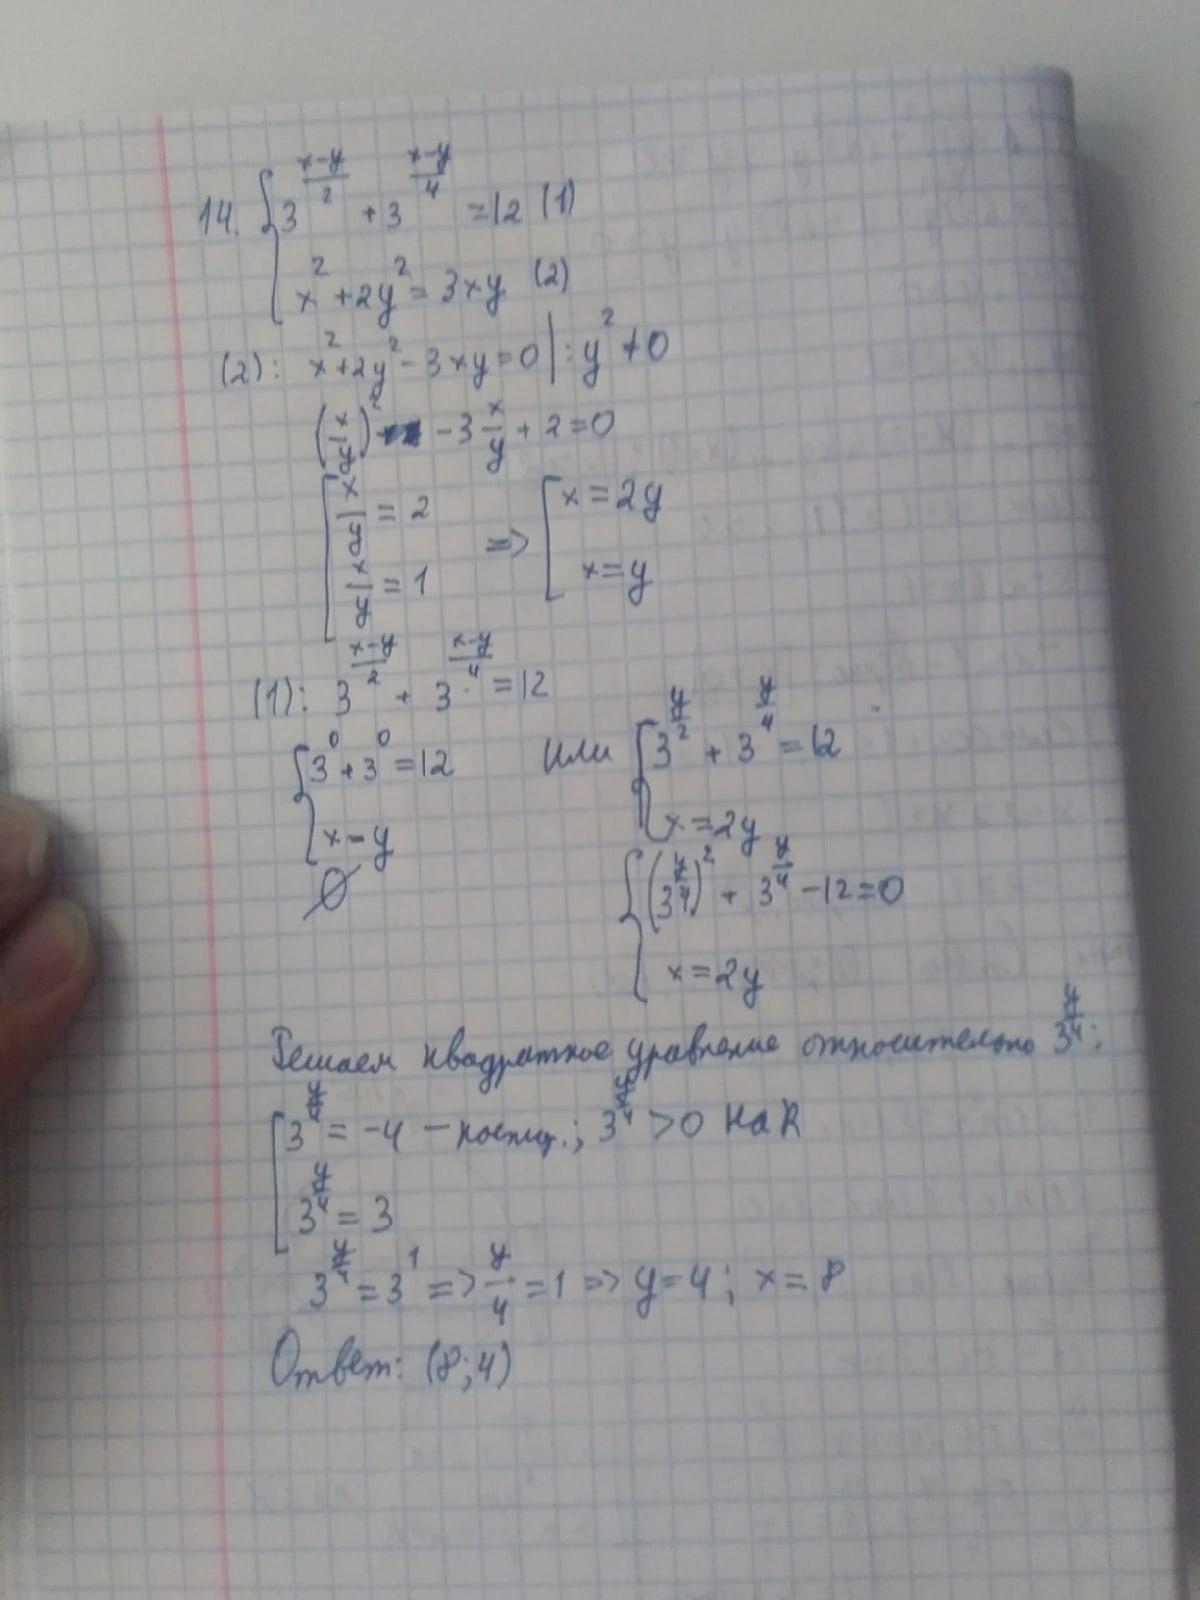 14. { 3^((x-y)/2) + 3^((x-y)/4) = 12 (1)
x² + 2y² = 3xy (2)
(2): x² + 2y² - 3xy = 0 | : y² ≠ 0
(x/y)² - 3 x/y + 2 = 0
[ x/y = 2 => [ x = 2y
x/y = 1 x = y
(1): 3^((x-y)/2) + 3^((x-y)/4) = 12
{ 3⁰ + 3⁰ = 12 или { 3^(y/2) + 3^(y/4) = 12
x = y x = 2y
∅ { (3^(y/4))² + 3^(y/4) - 12 = 0
x = 2y
Решаем квадратное уравнение относительно 3^(y/4):
[ 3^(y/4) = -4 – ; 3^(y/4) > 0 на R
3^(y/4) = 3
3^(y/4) = 3¹ => y/4 = 1 => y = 4; x = 8
Ответ: (8; 4)